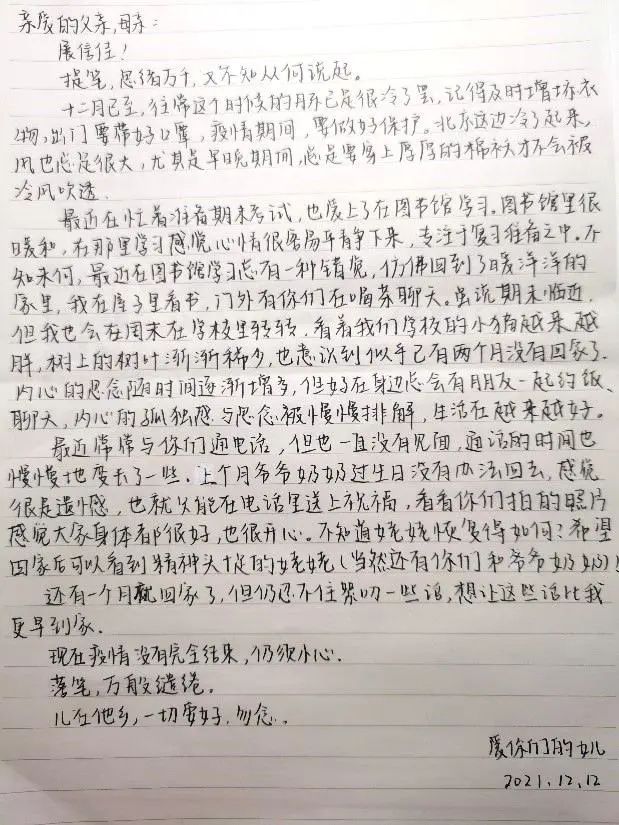 亲爱的父亲,母亲:
展信佳!
提笔,思绪万千,又不知从何说起。
十二月已至,往常这个时候的
已是很冷了罢,记得及时增添衣
物,出门要带好口罩,疫情期间,要做好保护。北京这边冷了起来,
风也总是很大,尤其是早晚期间,总是要穿上厚厚的棉袄才不会被
冷风吹透.
最近在忙着准备期末考试,也爱上了在图书馆学习。图书馆里很
暖和,在那里学习感觉心情很容易平静下来,专注于复习准备之中。不
知来何,最近在图书馆学习总有一种错觉,仿佛回到了暖洋洋的
家里,我在屋子里看书,门外有你们在喝茶聊天。虽说期末临近,
但我也会在周末在学校里转转,看着我们学校的小猫越来越
胖,树上的树叶渐渐稀少,也意识到似乎已有两个月没有回家了.
内心的思念随时间逐渐增多,但好在身边总会有朋友一起约饭、
聊天,内心的孤独感与思念被慢慢排解,生活在越来越好。
最近常常与你们通电话,但也一直没有见面,通话的时间也
慢慢地变长了一些.上个月爷爷奶奶过生日没有办法回去,感觉
很是遗憾,也就只能在电话里送上祝福,看着你们拍的照片
感觉大家身体都很好,也很开心。不知道姥姥恢复得如何?希望
回家后可以看到精神头挺的姥姥(当然还有你们和爷爷奶奶)!
还有一个月就回家了,但仍忍不住絮叨一些话,想让这些话比我
更早到家.
现在疫情没有完全结束,仍须小心.
落笔,万般缱绻。
儿在他乡,一切安好,勿念.
爱你们的女儿
2021.12.12